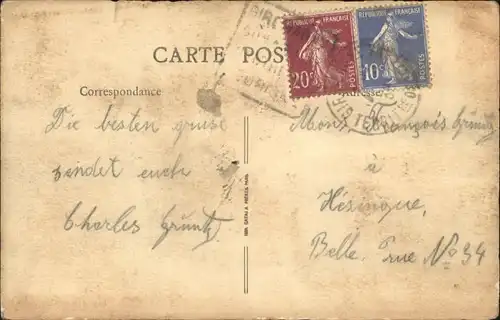 CARTE POS
RÉPUBLIQUE FRANÇAISE
20c
POSTES
RÉPUBLIQUE FRANÇAISE
10c
POSTES
Correspondance
Adresse
Die besten grüse
sendet euch
Charles Gruntz
Mons François Gruntz
à
Hésingue,
Belle. Rue No 34